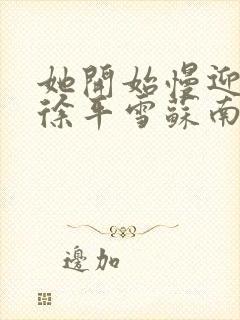 她開始慢迎
徐平雪蘇南
邊加